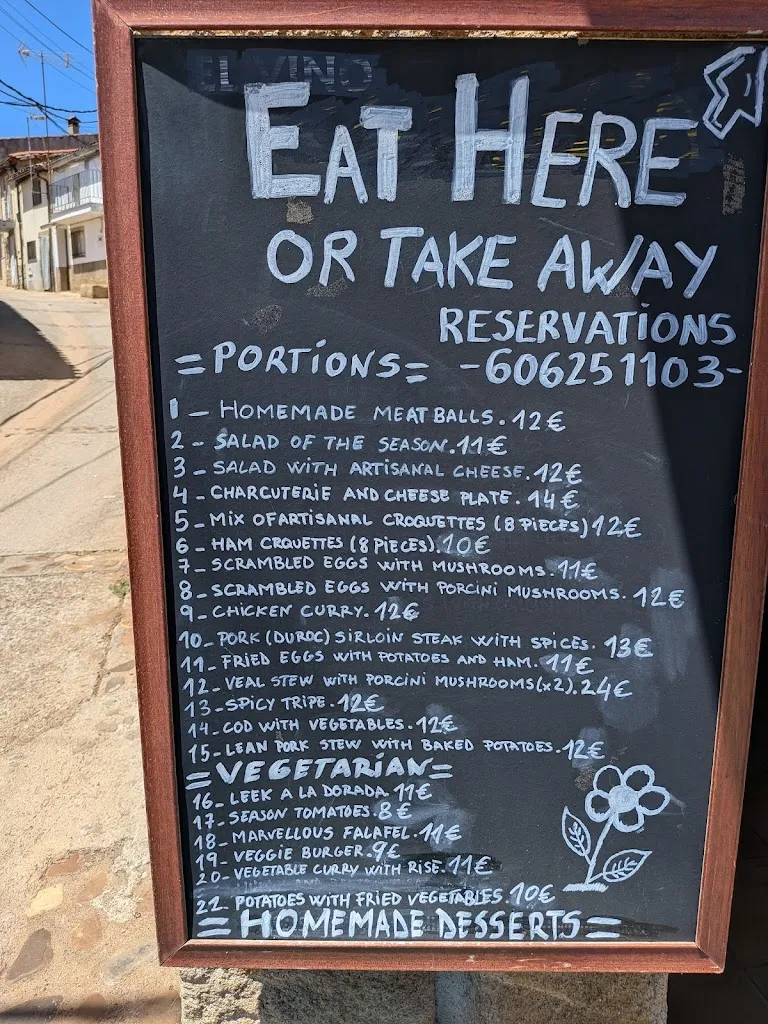 EL VINO
EAT HERE
OR TAKE AWAY
RESERVATIONS
=PORTIONS= -606251103-
1 - HOMEMADE MEATBALLS. 12€
2 - SALAD OF THE SEASON. 11€
3 - SALAD WITH ARTISANAL CHEESE. 12€
4 - CHARCUTERIE AND CHEESE PLATE. 14€
5 - MIX OF ARTISANAL CROQUETTES (8 PIECES) 12€
6 - HAM CRQUETTES (8 PIECES). 10€
7 - SCRAMBLED EGGS WITH MUSHROOMS. 11€
8 - SCRAMBLED EGGS WITH PORCINI MUSHROOMS. 12€
9 - CHICKEN CURRY. 12€
10 - PORK (DUROC) SIRLOIN STEAK WITH SPICES. 13€
11 - FRIED EGGS WITH POTATOES AND HAM. 11€
12 - VEAL STEW WITH PORCINI MUSHROOMS (x2). 24€
13 - SPICY TRIPE. 12€
14 - COD WITH VEGETABLES. 12€
15 - LEAN PORK STEW WITH BAKED POTATOES. 12€
=VEGETARIAN=
16 - LEEK A LA DORADA. 11€
17 - SEASON TOMATOES. 8€
18 - MARVELLOUS FALAFEL. 11€
19 - VEGGIE BURGER. 9€
20 - VEGETABLE CURRY WITH RISE. 11€
21 POTATOES WITH FRIED VEGETABLES. 10€
=HOMEMADE DESSERTS=